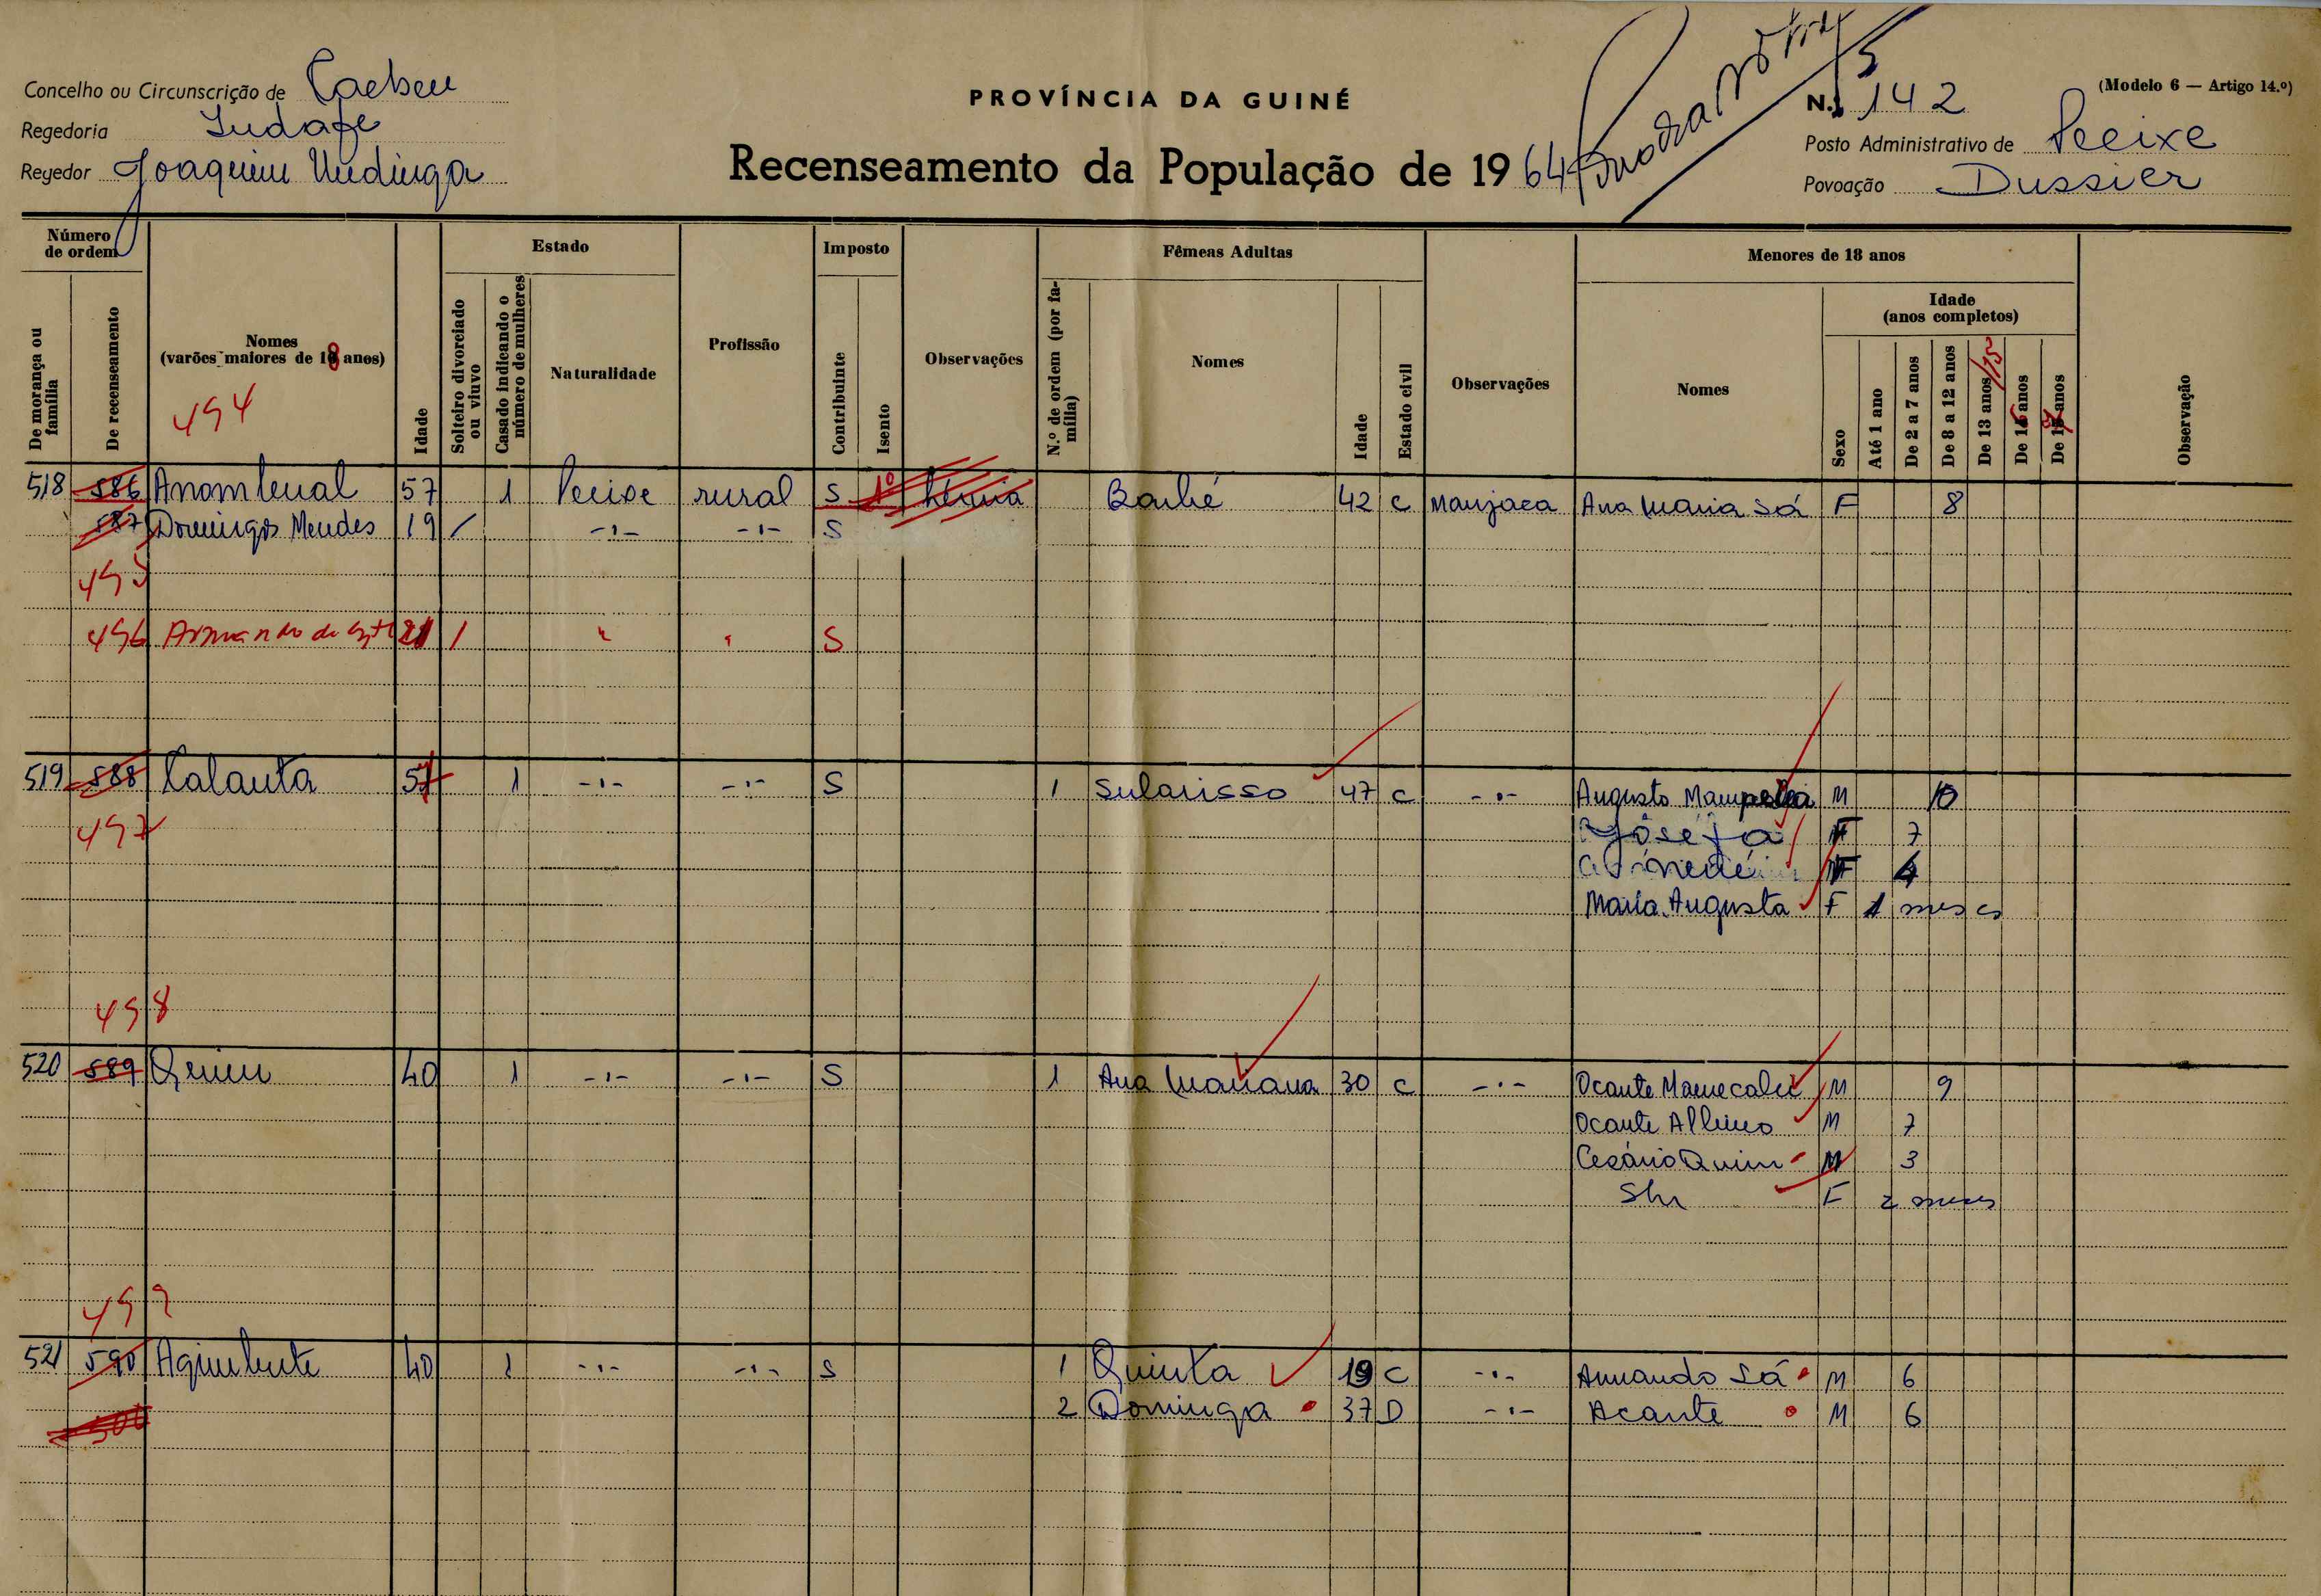 Concelho ou Circunscrição de Caebeu
PROVÍNCIA DA GUINÉ
N.º 142
(Modelo 6 — Artigo 14.º)
Regedoria
Posto Administrativo de Pecixe
Regedor Joaquim
Recenseamento da População de 1964
Povoação Dussier
Número de ordem
De morança ou família
De recenseamento
Nomes (varões maiores de 18 anos)
494
Idade
Estado
Solteiro divorciado ou viuvo
Casado indicando o número de mulheres
Naturalidade
Profissão
Imposto
Contribuinte
Isento
Observações
Fêmeas Adultas
N.º de ordem (por família)
Nomes
Idade
Estado civil
Observações
Menores de 18 anos
Nomes
Sexo
Idade (anos completos)
Até 1 ano
De 2 a 7 anos
De 8 a 12 anos
De 13 anos /15
De 16 anos
De 17 anos
Observação
518 586 57 1 Pecixe rural S 1º hérnia Barbé 42 C Manjaca Ana Maria Sá F 8
587 Domingos Mendes 19 / -"- -"- S
495
496 Armando de 21 / " " S
519 588 Calanta 57 1 -"- -"- S 1 Sularisso 47 C -"- Augusto M 10
497 Josefa F 7
F 4
Maria Augusta F 1 meses
498
520 589 Quim 40 1 -"- -"- S 1 Ana Mariana 30 C -"- Ocante Mamecalu M 9
Ocante Albino M 7
Cesário Quim M 3
F 2 meses
499
521 590 40 1 -"- -"- S 1 Quinta 19 C -"- Armando Sá M 6
500 2 Dominga 37 D -"- Acante M 6